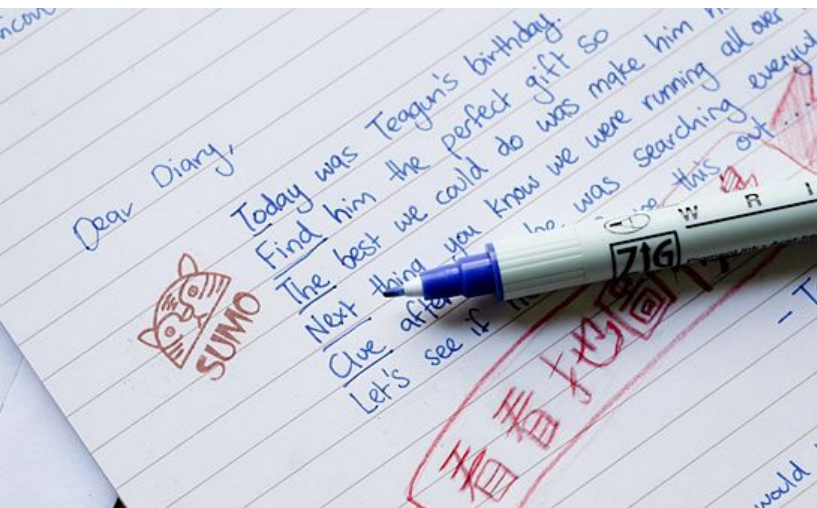 Dear Diary,
Today was Teagun's birthday.
Find him the perfect gift so
The best we could do was make him
Next thing you know we were running all over
Clue after he was searching
Let's see if this out....
SUMO
看看
W R I
ZIG
would